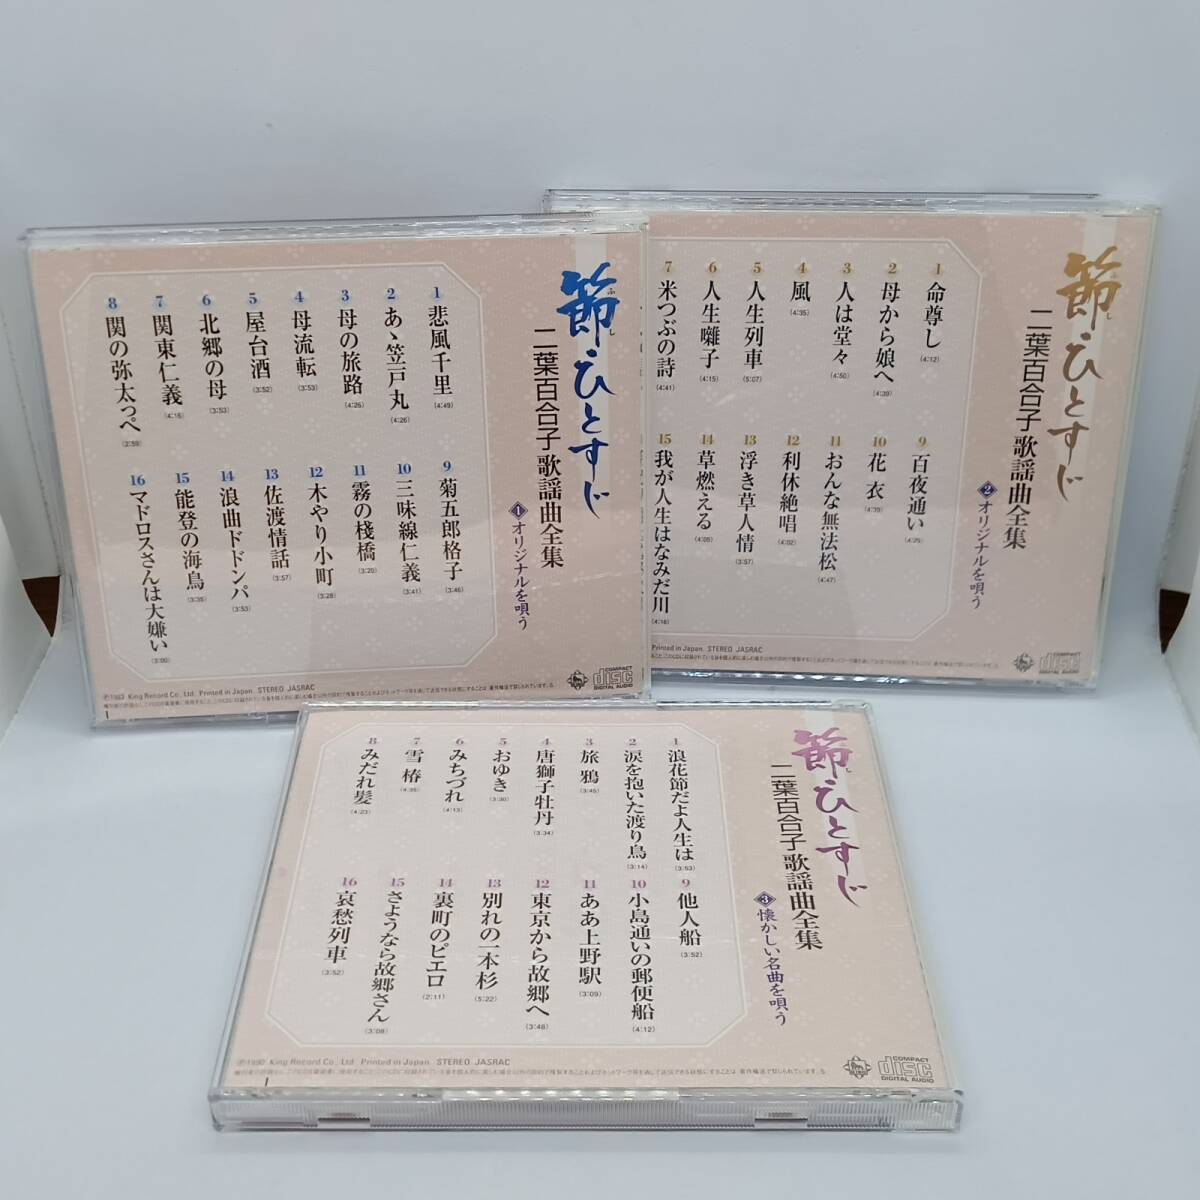 節・ひとすじ
ふし
二葉百合子 歌謡曲全集
1 オリジナルを唄う
1 悲風千里 (4:49)
2 あゝ笠戸丸 (4:26)
3 母の旅路 (4:26)
4 母流転 (3:53)
5 屋台酒 (3:52)
6 北郷の母 (3:53)
7 関東仁義 (4:16)
8 関の弥太っぺ (2:59)
9 菊五郎格子 (3:46)
10 三味線仁義 (3:41)
11 霧の棧橋 (3:20)
12 木やり小町 (3:28)
13 佐渡情話 (3:57)
14 浪曲ドドンパ (3:53)
15 能登の海鳥 (3:35)
16 マドロスさんは大嫌い (3:00)
King Record Co., Ltd. Printed in Japan. STEREO JASRAC
COMPACT disc DIGITAL AUDIO
節・ひとすじ
二葉百合子 歌謡曲全集
2 オリジナルを唄う
1 命尊し (4:12)
2 母から娘へ (4:39)
3 人は堂々 (4:50)
4 風 (4:35)
5 人生列車 (5:07)
6 人生囃子 (4:15)
7 米つぶの詩 (4:41)
9 百夜通い
10 花衣 (4:39)
11 おんな無法松 (4:47)
12 利休絶唱 (4:02)
13 浮き草人情 (3:57)
14 草燃える (4:09)
15 我が人生はなみだ川 (4:16)
Printed in Japan. STEREO JASRAC
COMPACT disc DIGITAL AUDIO
節・ひとすじ
二葉百合子 歌謡曲全集
3 懐かしい名曲を唄う
1 浪花節だよ人生は (3:53)
2 涙を抱いた渡り鳥 (3:14)
3 旅鴉 (3:45)
4 唐獅子牡丹 (3:34)
5 おゆき (3:30)
6 みちづれ (4:13)
7 雪椿 (4:35)
8 みだれ髪 (4:23)
9 他人船 (3:52)
10 小島通いの郵便船 (4:12)
11 ああ上野駅 (3:09)
12 東京から故郷へ (3:48)
13 別れの一本杉 (5:22)
14 裏町のピエロ (2:11)
15 さようなら故郷さん (3:08)
16 哀愁列車 (3:52)
King Record Co., Ltd. Printed in Japan. STEREO JASRAC
COMPACT disc DIGITAL AUDIO